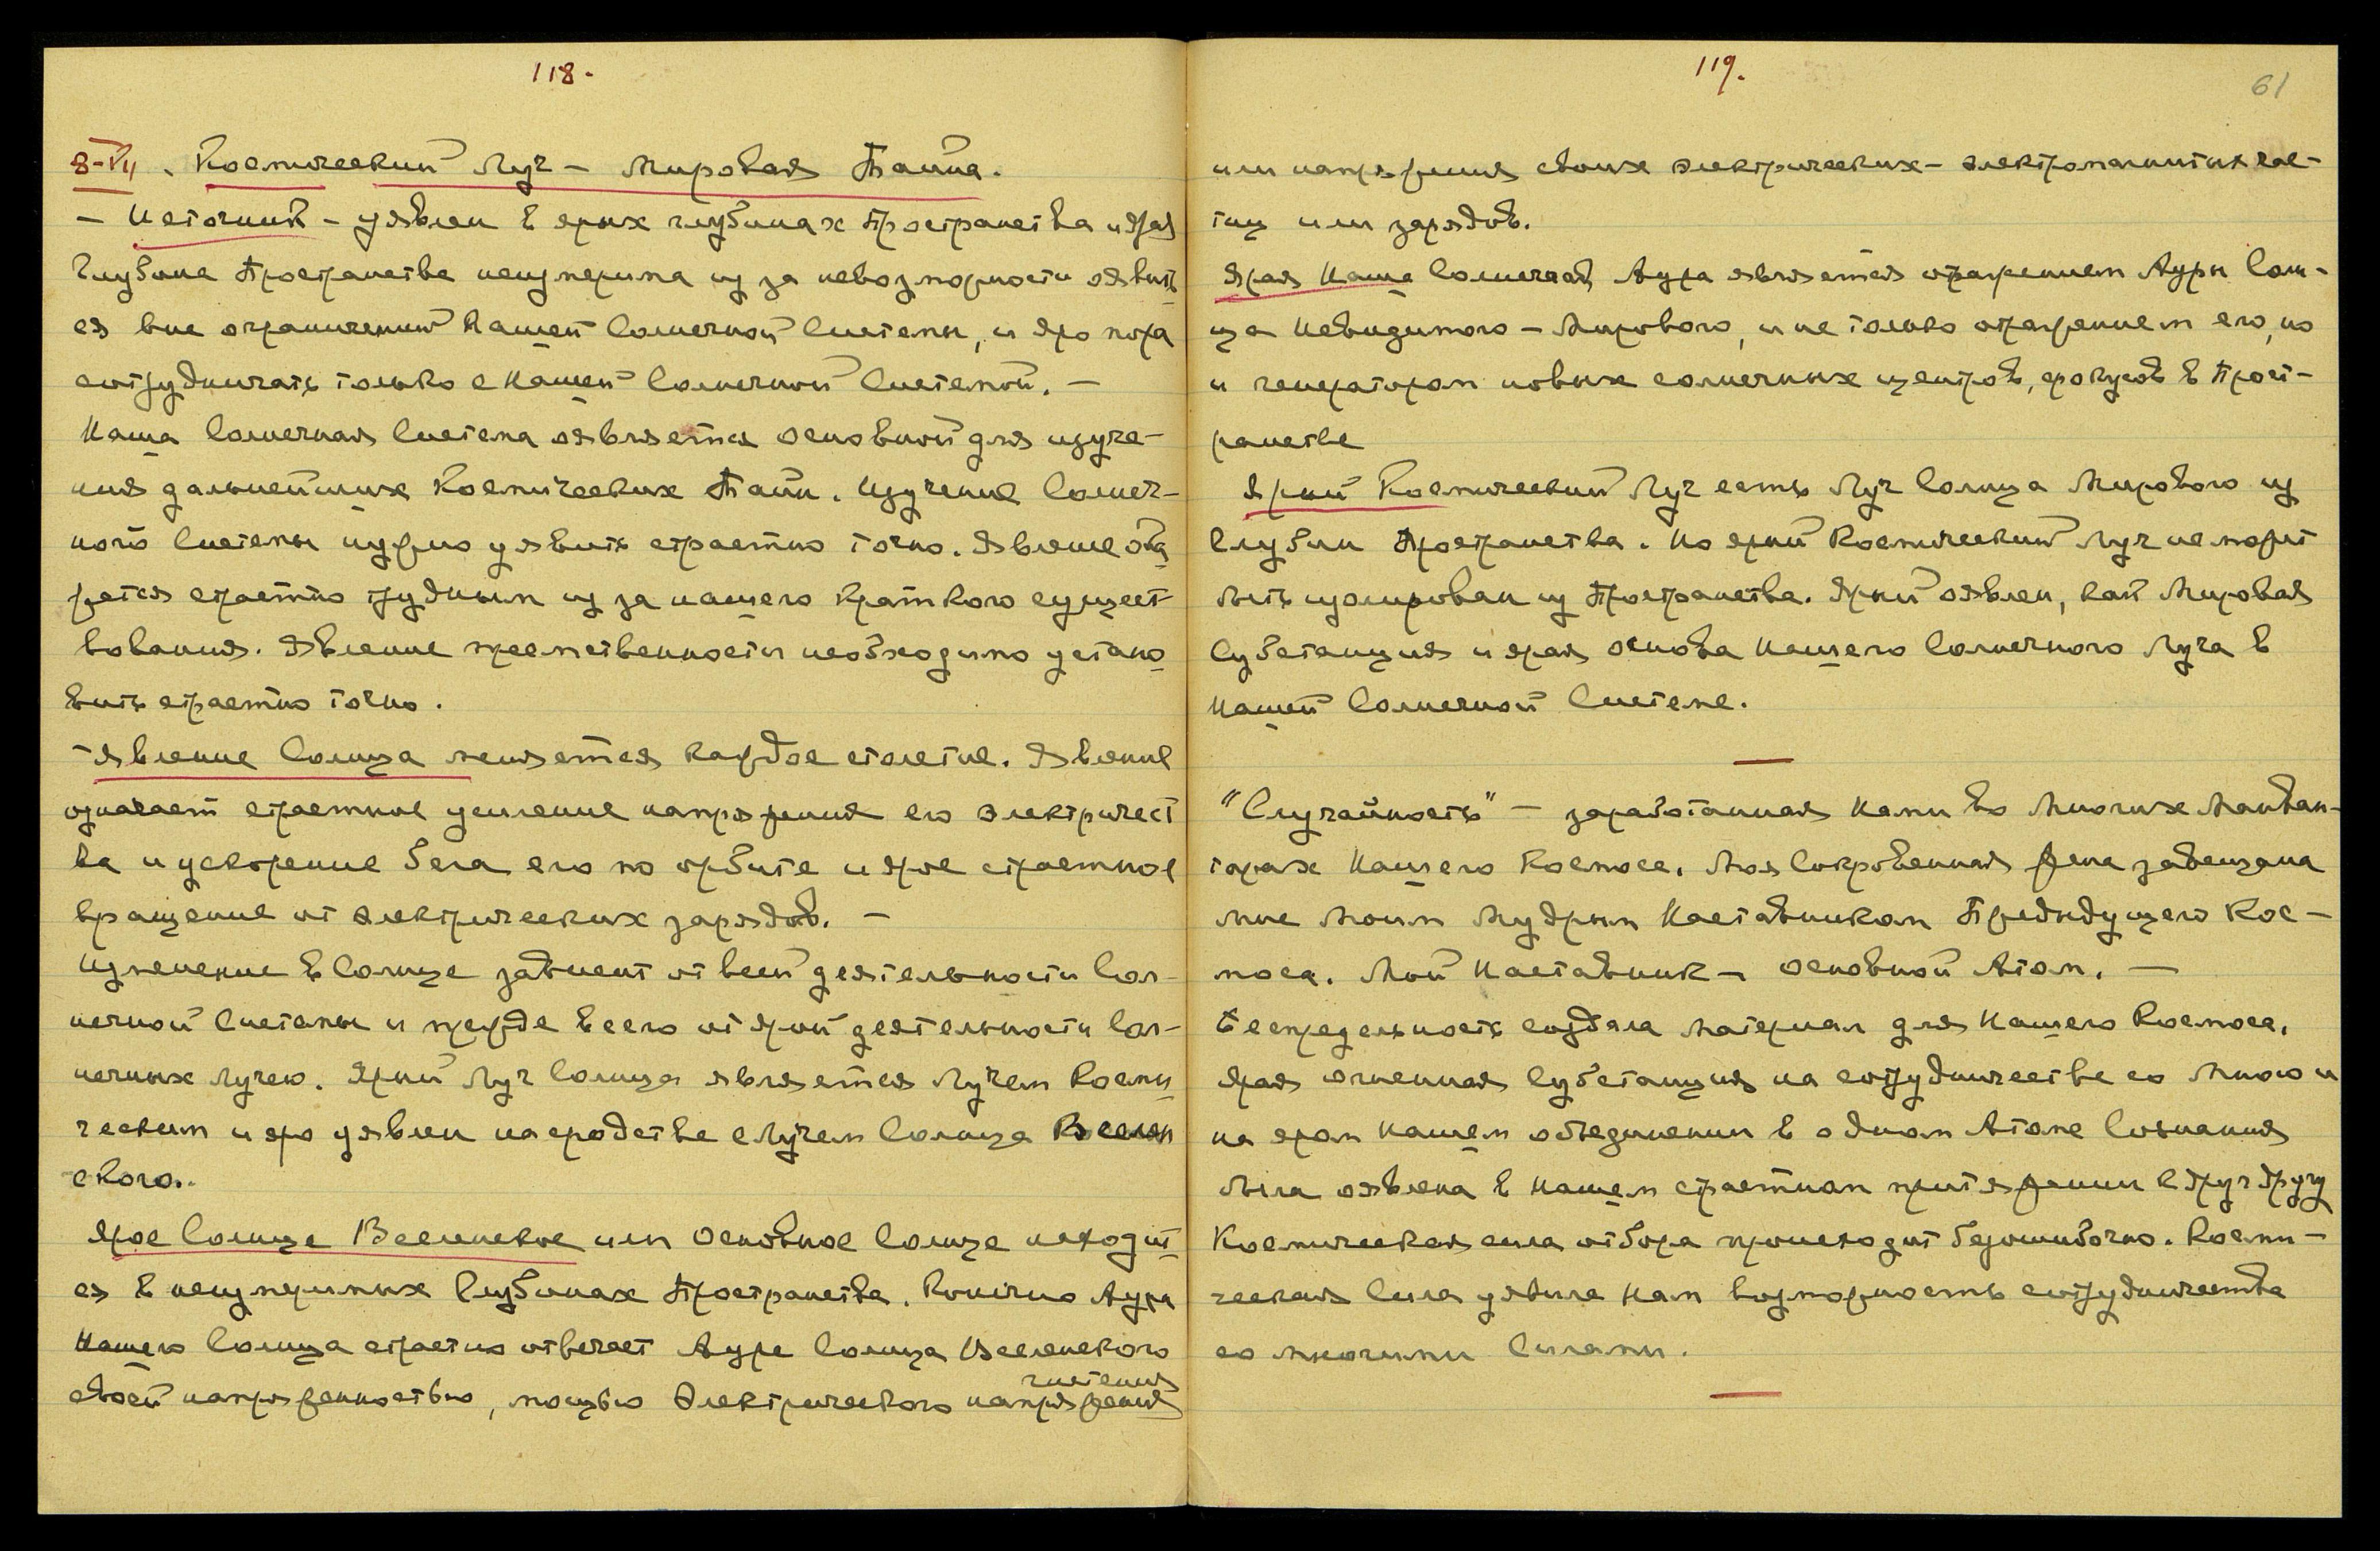 118.
8-VII. Космический Луч – Мировая Тайна.
– Источник – уявлен в ярых глубинах Пространства и ярая
Глубина Пространства неизмерима из за невозможности оявить
ся вне ограничений Нашей Солнечной Системы, и яро могу
сотрудничать только с Нашей Солнечной Системой. –
Наша Солнечная Система оявляется основной для изуче-
ния дальнейших Космических Тайн. Изучение Солнеч-
ной Системы нужно уявить страстно точно. Явление ока
жется страстно трудным из за нашего краткого сущест
вования. Явление преемственности необходимо устано
вить страстно точно.
– Явление Солнца меняется каждое столетие. Явление
означает страстное усиление напряжения его электричест
ва и ускорение бега его по орбите и ярое страстное
вращение от электрических зарядов. –
Изменение в Солнце зависит от всей деятельности Сол-
нечной Системы и прежде всего от ярой деятельности Сол-
нечных лучей. Ярый Луч Солнца является Лучем Косми
ческим и яро уявлен на сродстве с Лучем Солнца Вселен
ского.
Ярое Солнце Вселенское или Основное Солнце находит
ся в неизмеримых Глубинах Пространства. Конечно Аура
Нашего Солнца страстно отвечает Ауре Солнца Вселенского
своей напряженностью, мощью Электрического напряжения
119.
61
или напряжения своих электрических – электромагнитных час-
тиц или зарядов.
Ярая Наша Солнечная Аура является отражением Ауры Солн-
ца Невидимого – Мирового, и не только отражением его, но
и генератором новых солнечных центров, фокусов в Прост-
ранстве
Ярый Космический Луч есть Луч Солнца Мирового из
Глубин Пространства. Но ярый Космический Луч не может
быть изолирован из Пространства. Ярый оявлен, как Мировая
Субстанция и ярая основа Нашего Солнечного Луча в
Нашей Солнечной Системе.
"Случайность" – заработанная Нами во Многих Манван-
тарах Нашего Космоса. Моя Сокровенная Жена завещана
мне Моим Мудрым Наставником Предыдущего Кос-
моса. Мой Наставник – основной Атом. –
Беспредельность создала материал для Нашего Космоса.
Ярая огненная Субстанция на сотрудничестве со Мною и
на яром Нашем объединении в одном Атоме Сознания
была оявлена в Нашем страстном притяжении к друг другу
Космическая сила отбора происходит безошибочно. Косми-
ческая Сила уявила Нам возможность сотрудничества
со многими Силами.